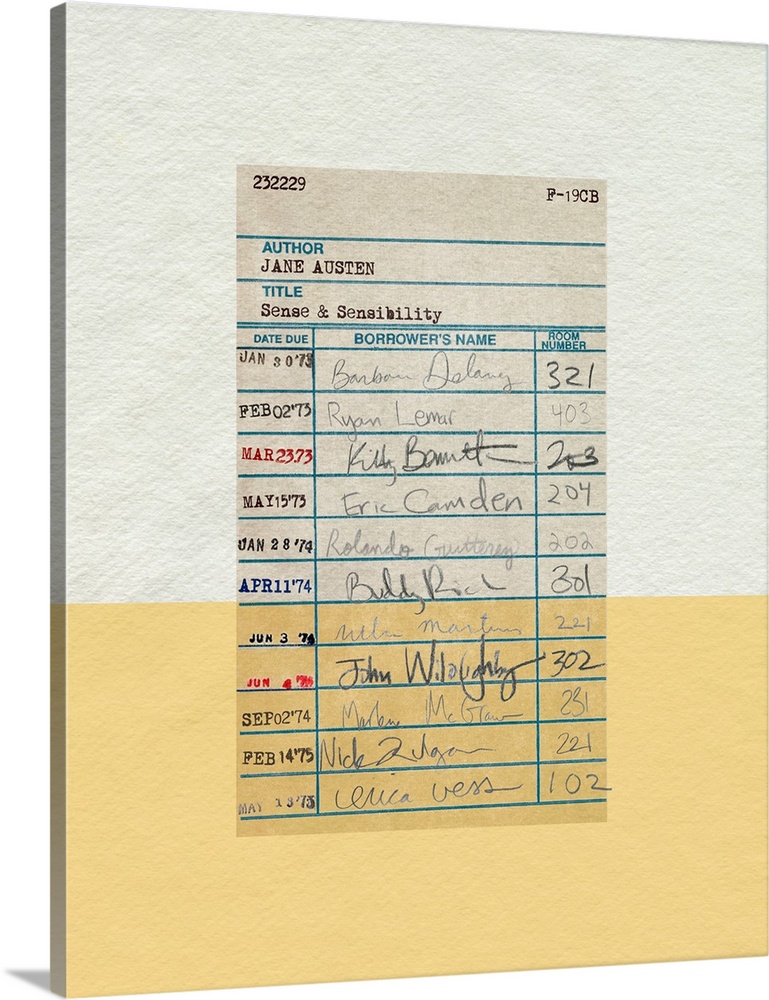 232229
F-19CB
AUTHOR
JANE AUSTEN
TITLE
Sense & Sensibility
DATE DUE BORROWER'S NAME ROOM NUMBER
JAN 30'73 Barbara Delaney 321
FEB02'73 Ryan Lemar 403
MAR23.73 Kitty 203
MAY15'73 Eric Camden 204
JAN 28'74 Rolando 202
APR11'74 Buddy Rich 301
JUN 3 '74 221
JUN 4 John Wiloughby 302
SEP02'74 Marlene McGraw 231
FEB 14'75 Nick 221
MAY 13'75 erica vess 102